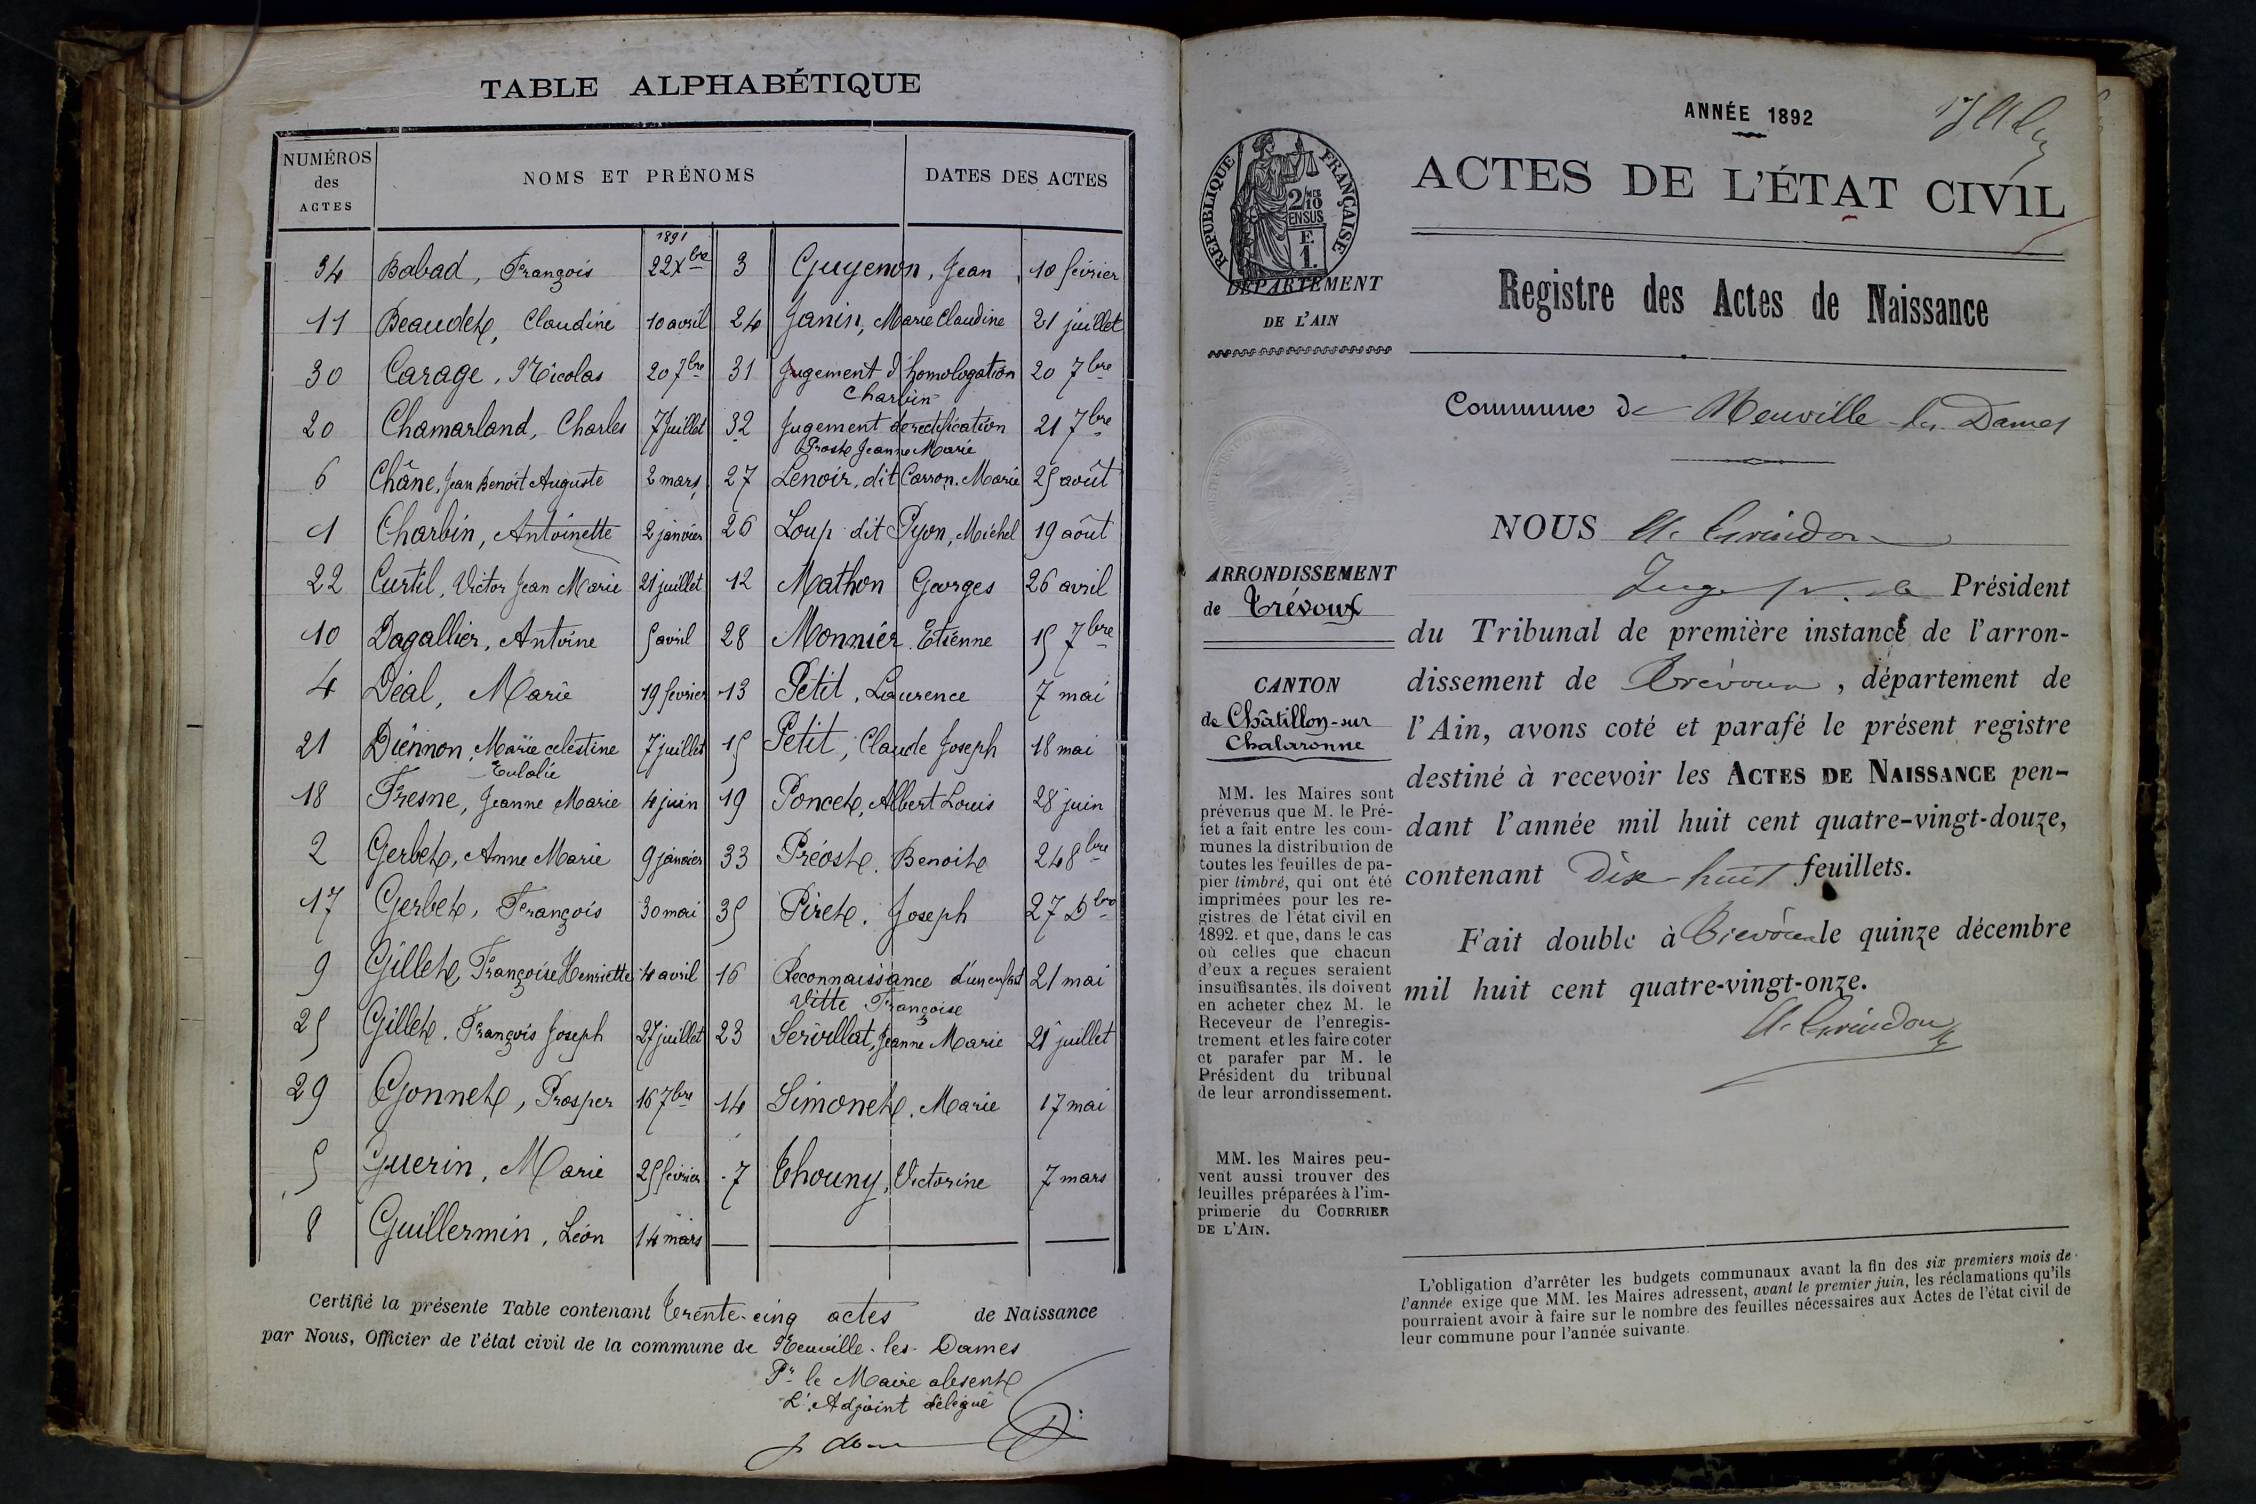 TABLE ALPHABÉTIQUE
NUMÉROS
des
ACTES
NOMS ET PRÉNOMS
DATES DES ACTES
1891
34 Babad, François 22 Xbre
11 Beaudet, Claudine 10 avril
30 Carage, Nicolas 20 7bre
20 Chamarland, Charles 7 Juillet
6 Châne, Jean Benoit Auguste 2 mars
1 Charbin, Antoinette 2 janvier
22 Curtil, Victor Jean Marie 21 juillet
10 Dagallier, Antoine 5 avril
4 Déal, Marie 19 fevrier
21 Diénnon, Marie celestine 7 juillet
Eulalie
18 Fresne, Jeanne Marie 4 juin
2 Gerbet, Anne Marie 9 janvier
17 Gerbet, François 30 mai
9 Gillet, Françoise Henriette 4 avril
25 Gillet, François Joseph 27 juillet
29 Gonnet, Prosper 16 7bre
5 Guerin, Marie 25 février
8 Guillermin, Léon 14 mars
3 Guyenon, Jean 10 février
24 Janin, Marie Claudine 21 juillet
31 Jugement d'homologation 20 7bre
Charbin
32 Jugement de rectification 21 7bre
Prost Jeanne Marie
27 Lenoir, dit Carron, Marie 25 août
26 Loup dit Pyon, Michel 19 août
12 Mathon Georges 26 avril
28 Monnier Etienne 15 7bre
13 Petit, Laurence 7 mai
15 Petit, Claude Joseph 18 mai
19 Poncet, Albert Louis 28 juin
33 Préost, Benoit 24 8bre
35 Piret, Joseph 27 Dbre
16 Reconnaissance d'un enfant 21 mai
Vitte Françoise
23 Servillat, Jeanne Marie 21 juillet
14 Simonet, Marie 17 mai
7 Thouny, Victorine 7 mars
Certifié la présente Table contenant Trente-cinq actes de Naissance
par Nous, Officier de l'état civil de la commune de Neuville-les-Dames
Pr le Maire absent
L'Adjoint délégué
ANNÉE 1892
ACTES DE L'ÉTAT CIVIL
RÉPUBLIQUE FRANÇAISE
2/10
EN SUS
F.
1.
DÉPARTEMENT
DE L'AIN
Registre des Actes de Naissance
Commune de Neuville-les-Dames
ARRONDISSEMENT
de Trévoux
CANTON
de Châtillon-sur
Chalaronne
MM. les Maires sont
prévenus que M. le Pré-
fet a fait entre les com-
munes la distribution de
toutes les feuilles de pa-
pier timbré, qui ont été
imprimées pour les re-
gistres de l'état civil en
1892. et que, dans le cas
où celles que chacun
d'eux a reçues seraient
insuffisantes, ils doivent
en acheter chez M. le
Receveur de l'enregis-
trement et les faire coter
et parafer par M. le
Président du tribunal
de leur arrondissement.
MM. les Maires peu-
vent aussi trouver des
feuilles préparées à l'im-
primerie du COURRIER
DE L'AIN.
NOUS A. Grindon
Juge pr. le Président
du Tribunal de première instance de l'arron-
dissement de Trévoux, département de
l'Ain, avons coté et parafé le présent registre
destiné à recevoir les ACTES DE NAISSANCE pen-
dant l'année mil huit cent quatre-vingt-douze,
contenant Dix-huit feuillets.
Fait double à Trévoux le quinze décembre
mil huit cent quatre-vingt-onze.
A. Grindon
L'obligation d'arrêter les budgets communaux avant la fin des six premiers mois de
l'année exige que MM. les Maires adressent, avant le premier juin, les réclamations qu'ils
pourraient avoir à faire sur le nombre des feuilles nécessaires aux Actes de l'état civil de
leur commune pour l'année suivante.